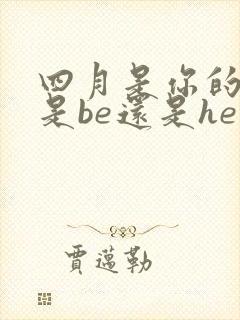 四月是你的
是be還是he
賈邁勒